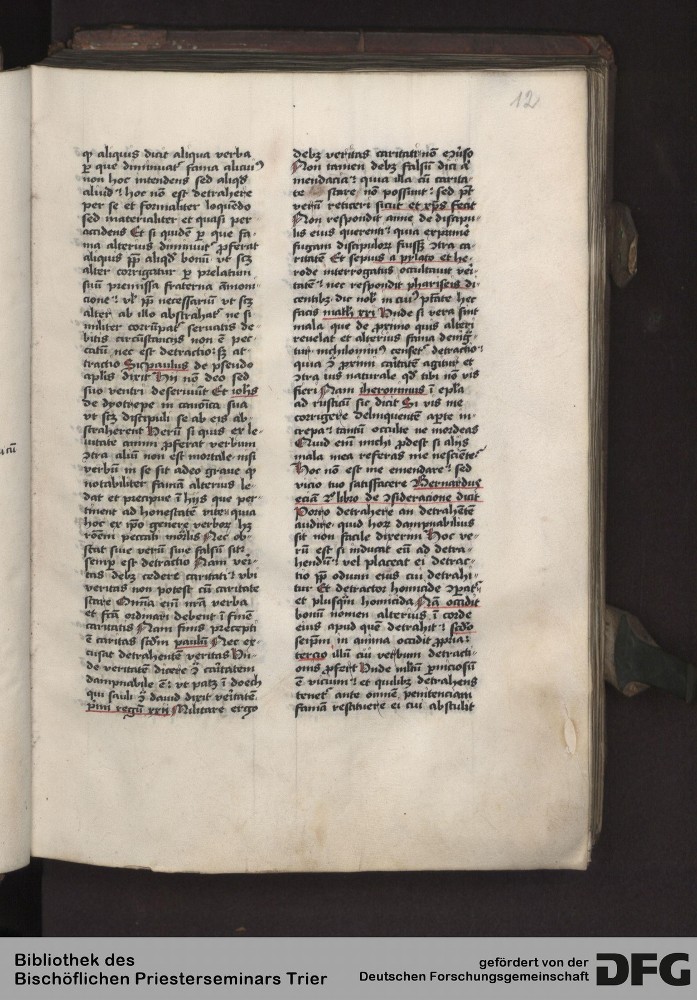 12
qꝫ aliquis dicit aliqua verba
ꝑ que diminuat᷑ fama alicuiꝰ
non hoc intendens sed aliqd
aliud ⁊ hoc nō est detrahere
per se et formaliter loquēdo
sed materialiter et quasi per
accidens Et si quidē ꝑ que fa-
ma alterius diminuit᷑ ꝓferat
aliquis ꝓp̄ aliqd bonū vt scꝫ
alter corrigatur ꝑ prelatum
suū premissa fraterna āmoni
cione ⁊ vl̓ ꝓp̄ necessariū vt scꝫ
alter ab illo abstrahat᷑ ne si
militer corrūpat᷑ seruatis de
bitis circūstanciis non ē pec
catū nec est detractio sꝫ at
tractio Sic paulus de pseudo
apl̄is dixit Hii nō deo sed
suo ventri deseruiūt Et ioh̄is
de dyotrepe in canonica sua
vt scꝫ discipuli se ab eis ab-
straherent Verū si quis ex le-
uitate animi ꝓferat verbum
ꝯtra aliū non est mortale nisi
verbū in se sit adeo graue qꝫ
notabiliter famā alterius le-
dat et precipue ī hijs que per-
tinent ad honestatē vite quia
hoc ex ip̄o genere verboꝝ hꝫ
rōem peccati mōlis Nec ob-
stat siue verū siue falsū sit
semꝑ est detractio Nam veri-
tas debꝫ cedere caritati ⁊ vbi
veritas non potest cū caritate
stare Omīa eīm nr̄a verba
et fc̄a ordinari debent ī finē
caritatis Nam finis precepti
ē caritas scd̄m paulū Nec ex-
cusat detrahentē veritas Vn̄-
de veritatē dicere ꝯ caritatem
dampnabile ē ⁊ vt patꝫ ī doech
qui sauli ꝯ dauid dixit veritatē
pīmi regū xxij Militare ergo
debꝫ veritas caritati nō e ꝯūso
Non tamen debꝫ falsū dici aˡ
mendacia ⁊ quia illa cū carita-
te stare nō possunt ⁊ sed pt̄
verū reticeri sicut et xp̄s fecit
Non respondit anne de discipu
lis eius querenti ⁊ quia exprimē
fugam discipuloꝝ fuissꝫ ꝯtra ca-
ritatē Et sepius a pylato et he-
rode interrogatus occultauit veri
tatē ⁊ nec respondit phariseis di
centibꝫ dic nob̄ in cuiꝰ ptāte hec
facis math xxi Vnde si vera sint
mala que de ꝓximo quis alteri
reuelat et alterius fama denig᷑
tur nichilominꝰ censet᷑ detractio ⁊
quia ꝯ ꝓximi caritatē agitur et
ꝯtra ius naturale qd tibi nō vis
fieri Nam iheronimus ī epl̄a
ad rusticū sic dicit Si vis me
corrigere delinquentē aperte in
crepa ⁊ tantū occulte ne mordeas
Quid eīm michi ꝓdest si alijs
mala mea referas me nesciēte
Hoc nō est me emendare ⁊ sed
vicio tuo satisfacere Bernardus
eciā 2º libro de ꝯsideracione dicit
Porro detrahere an detrahētē
audire quid hoꝝ dampnabilius
sit non facile dixerim Hoc ve-
rū est si inducat eū ad detra-
hendū ⁊ vel placeat ei detrac-
tio ꝓp̄ odium eius cui detrahi-
tur Et detractor homicide ꝯpat᷑
et plusqͣm homicida Nā occidit
bonū nomen alterius ī corde
eius apud quē detrahit ⁊ scd̄o
seip̄m in anima occidit ꝓpria ⁊
tercio illū cui verbum detracti-
onis ꝓfert Vnde nllm̄ ꝑniciosiꝰ
ē vicium ⁊ et quilibꝫ detrahens
tenet᷑ ante omnē penitenciam
famā restituere ei cui abstulit
Bibliothek des
Bischöflichen Priesterseminars Trier
gefördert von der
Deutschen Forschungsgemeinschaft
DFG